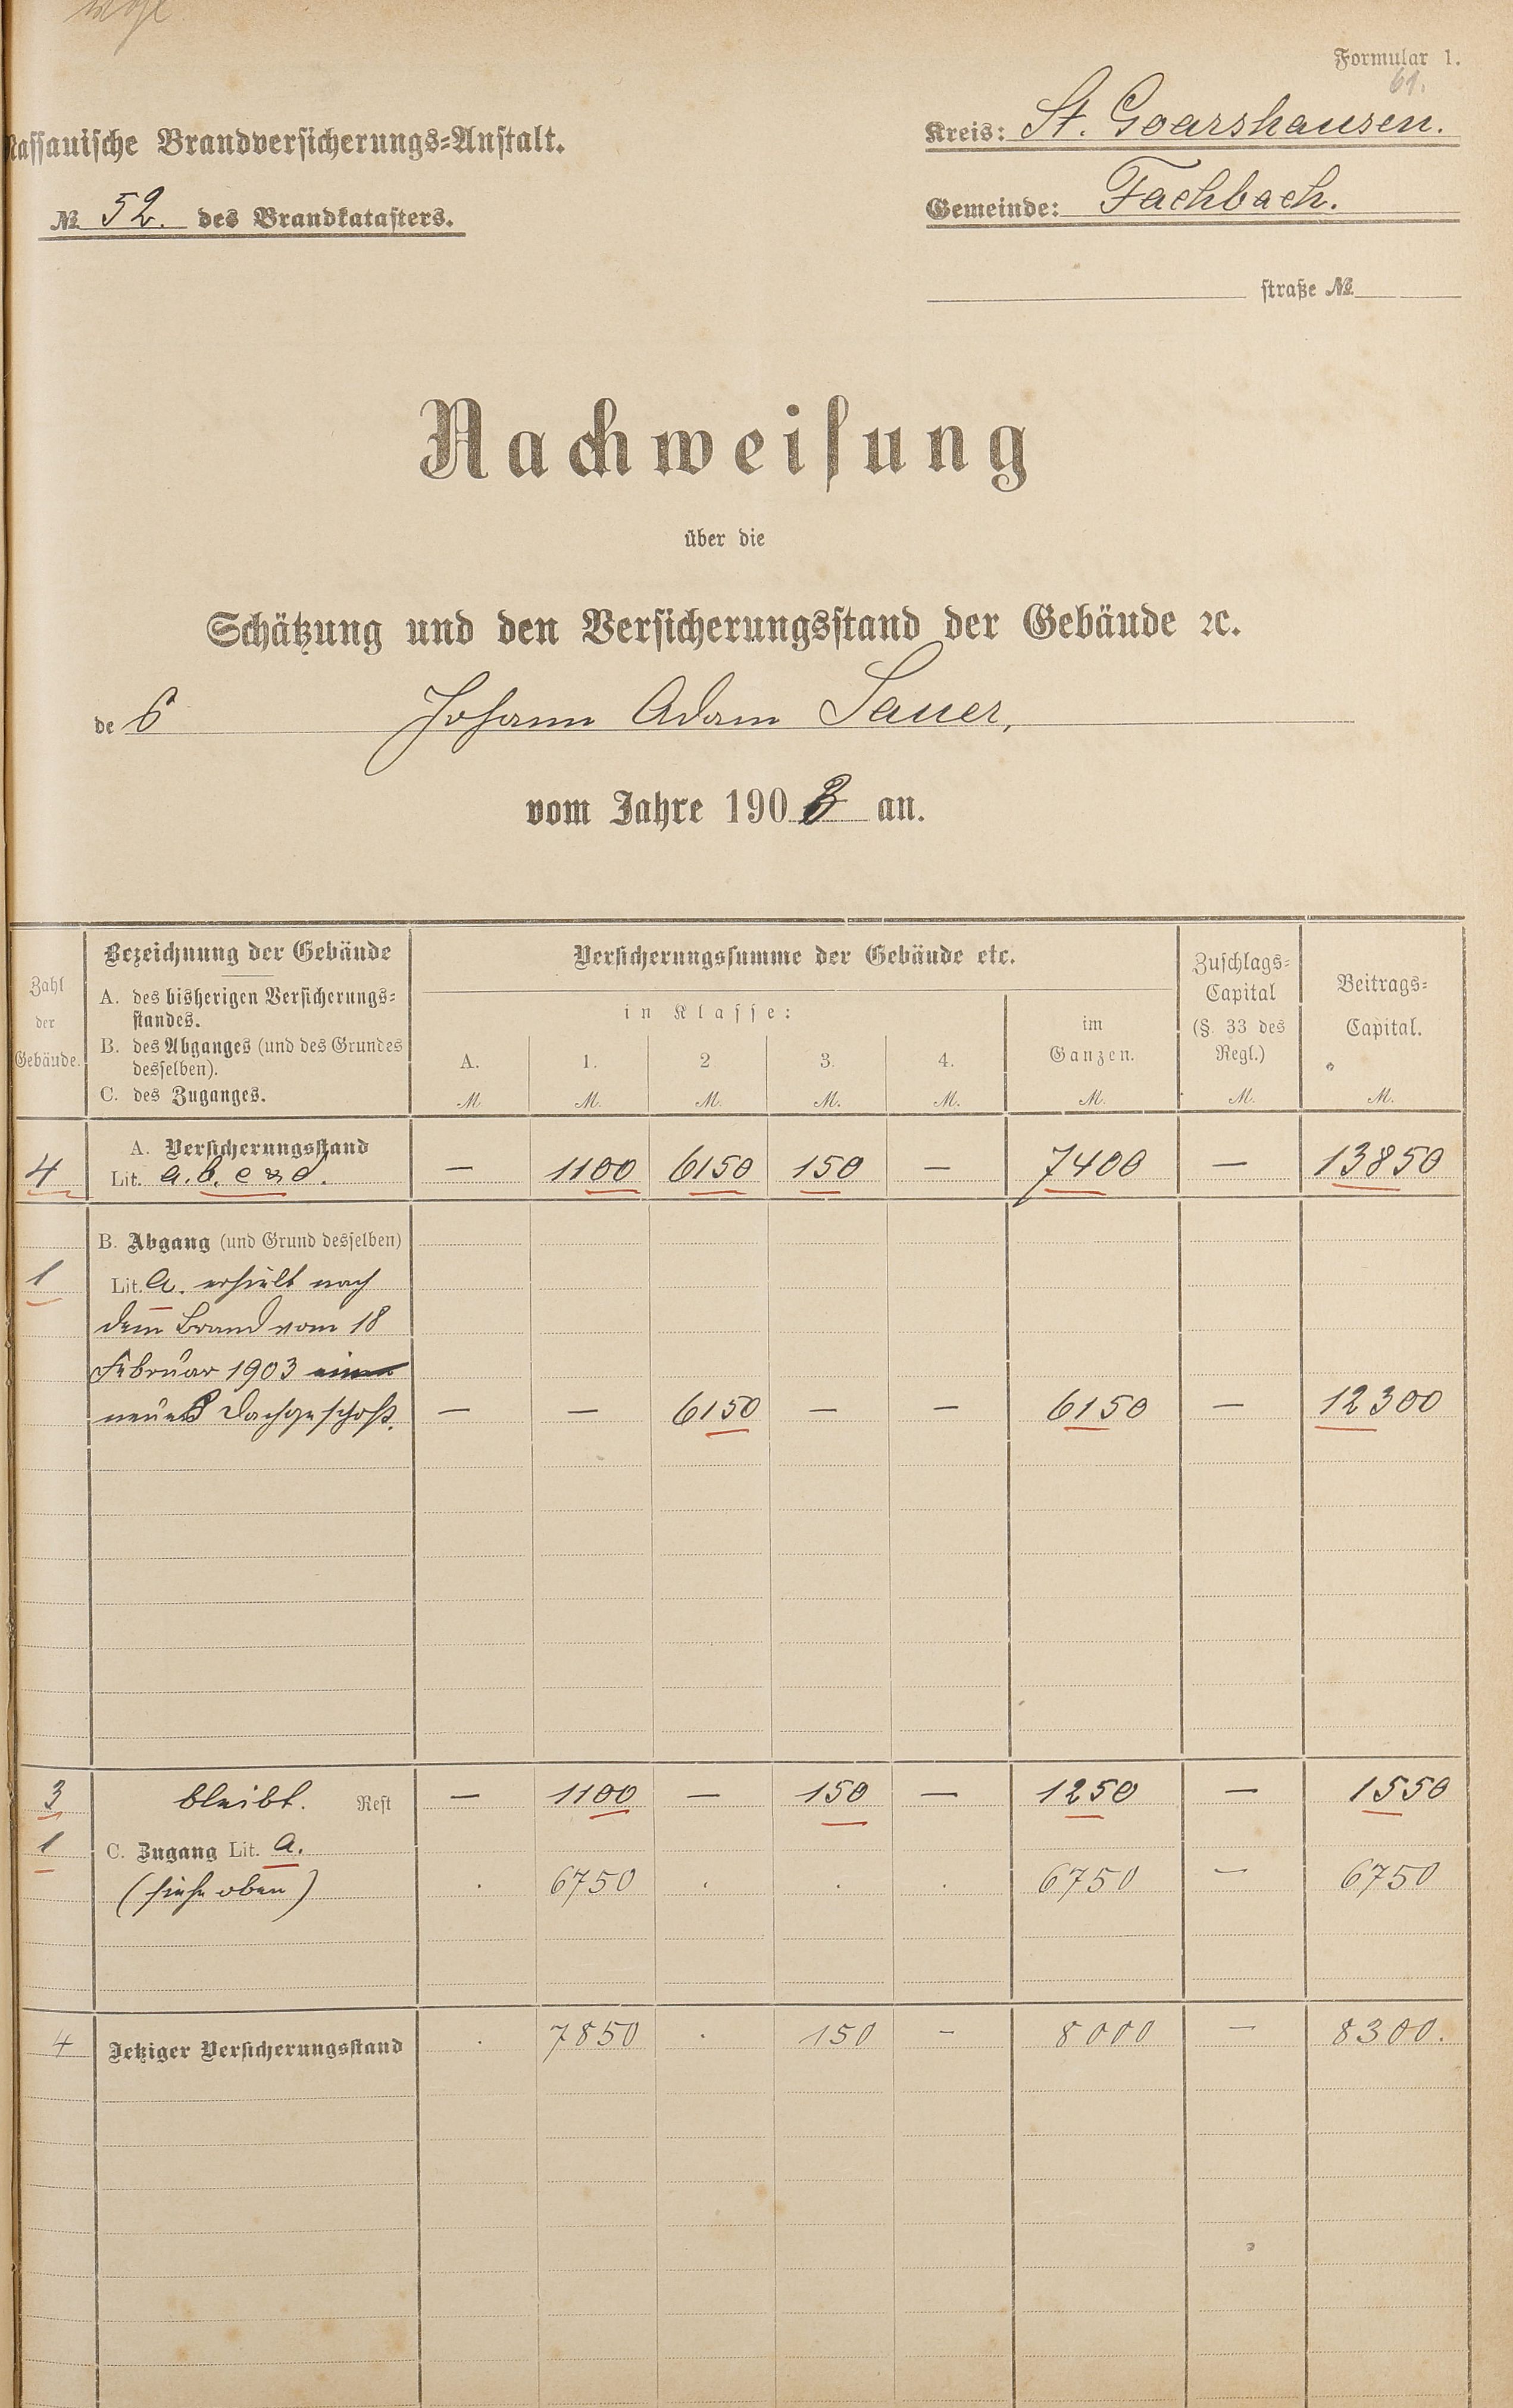 Formular 1.
61.
Nassauische Brandversicherungs-Anstalt.
№ 52. des Brandkatasters.
Kreis: St. Goarshausen.
Gemeinde: Fachbach.
straße №
Nachweisung
über die
Schätzung und den Versicherungsstand der Gebäude ꝛc.
des Johann Adam Sauer,
vom Jahre 1903 an.
Zahl der Gebäude.
Bezeichnung der Gebäude
A. des bisherigen Versicherungs-
standes.
B. des Abganges (und des Grundes
desselben).
C. des Zuganges.
Versicherungssumme der Gebäude etc.
in Klasse:
A. 1. 2 3. 4.
M M. M. M. M.
im
Ganzen.
M.
Zuschlags-
Capital
(§. 33 des
Regl.)
M.
Beitrags-
Capital.
M.
A. Versicherungsstand
4 Lit. a. b. c & d. — 1100 6150 150 — 7400 — 13850
B. Abgang (und Grund desselben)
1 Lit. a. erhielt nach
dem Brand vom 18
Februar 1903 einen
neues Dachgeschoß. — — 6150 — — 6150 — 12300
3 bleibt. Rest — 1100 — 150 — 1250 — 1550
1 C. Zugang Lit. a.
(siehe oben) . 6750 . . . 6750 — 6750
4 Jetziger Versicherungsstand . 7850 . 150 — 8000 — 8300.